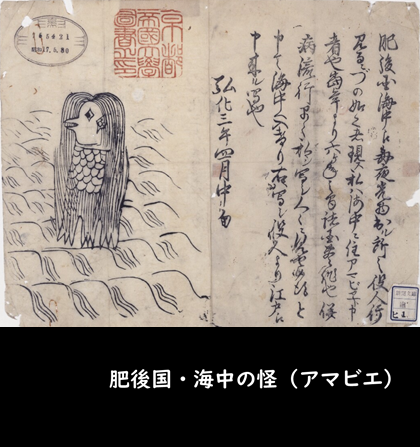 肥後国海中え毎夜光物出ル所之役人行
見るニづの如く者現ス私ハ海中ニ住アマビヱト申
者也当年より六ヶ年之間諸国豊作也併
病流行早々私シ写シ人々ニ見セ候得と
申て海中へ入けり右写シ役人より江戸え
申来ル写也
弘化三年四月中旬
京都
帝國大學
圖書之印
肥後国・海中の怪（アマビエ）